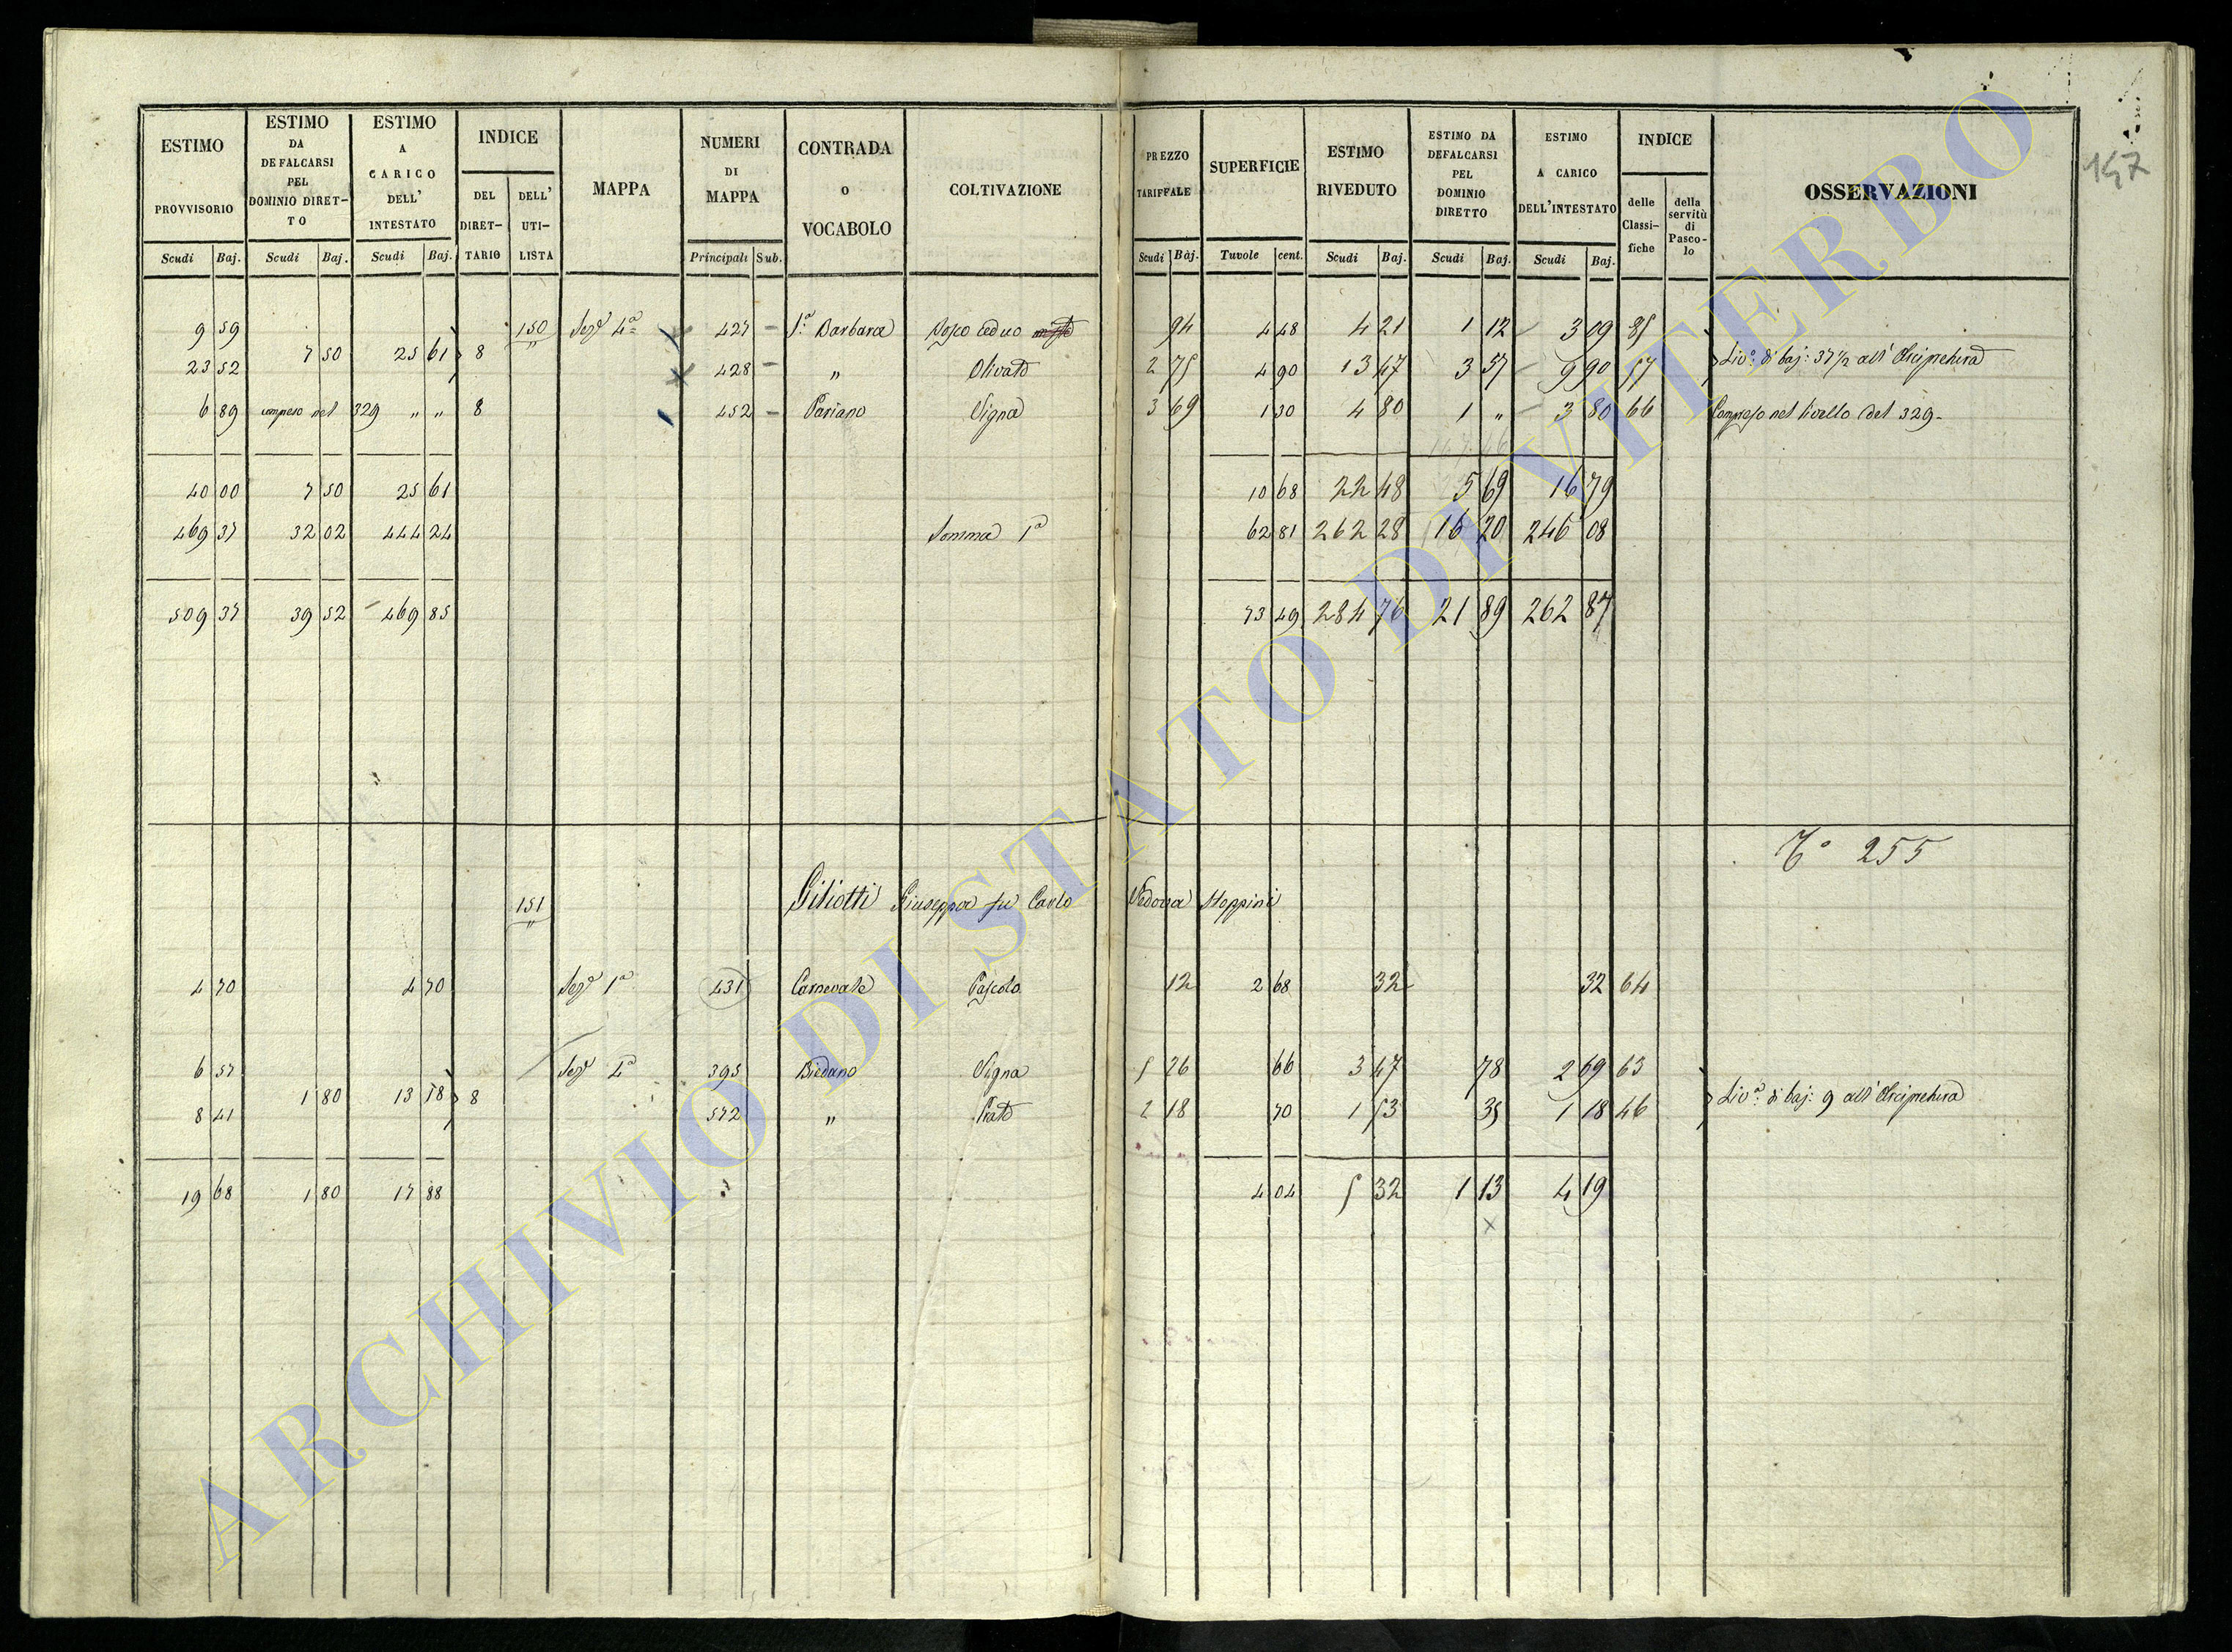 147
ESTIMO PROVVISORIO | ESTIMO DA DEFALCARSI PEL DOMINIO DIRETTO | ESTIMO A CARICO DELL' INTESTATO | INDICE | MAPPA | NUMERI DI MAPPA | CONTRADA o VOCABOLO | COLTIVAZIONE | PREZZO TARIFFALE | SUPERFICIE | ESTIMO RIVEDUTO | ESTIMO DA DEFALCARSI PEL DOMINIO DIRETTO | ESTIMO A CARICO DELL'INTESTATO | INDICE | OSSERVAZIONI
DEL DIRETTARIO | DELL' UTILISTA | delle Classifiche | della servitù di Pascolo
Scudi | Baj. | Scudi | Baj. | Scudi | Baj. | Principali | Sub. | Scudi | Baj. | Tavole | cent. | Scudi | Baj. | Scudi | Baj. | Scudi | Baj.
9 59 | 150 | Sez.e 4a | 427 | S.a Barbara | Bosco ceduo | 94 | 4 48 | 4 21 | 1 12 | 3 09 | 85
7 50 | 25 61 | 8
23 52 | 428 | " | Olivato | 2 75 | 4 90 | 13 47 | 3 57 | 9 90 | 57 | Liv.o di baj: 37 1/2 all' Arcipretura
6 89 | compreso nel 329 " " | 8 | 452 | Pariano | Vigna | 3 69 | 1 30 | 4 80 | 1 " | 3 80 | 66 | Compreso nel livello del 329-
40 00 | 7 50 | 25 61 | 10 68 | 22 48 | 5 69 | 16 79
469 37 | 32 02 | 444 24 | Somma 1a | 62 81 | 262 28 | 16 20 | 246 08
509 37 | 39 52 | 469 85 | 73 49 | 284 76 | 21 89 | 262 87
255
151 | Giliotti Giuseppa fu Carlo Vedova Stoppini
4 70 | 4 70 | Sez.e 1a | 431 | Carnevale | Pascolo | 12 | 2 68 | 32 | 32 | 64
6 57 | Sez.e 4a | 395 | Biedano | Vigna | 5 26 | 66 | 3 47 | 78 | 2 69 | 63
1 80 | 13 18 | 8 | Liv.o di baj: 9 all' Arcipretura
8 41 | 572 | " | Prato | 2 18 | 70 | 1 53 | 35 | 1 18 | 46
19 68 | 1 80 | 17 88 | 4 04 | 5 32 | 1 13 | 4 19
ARCHIVIO DI STATO DI VITERBO